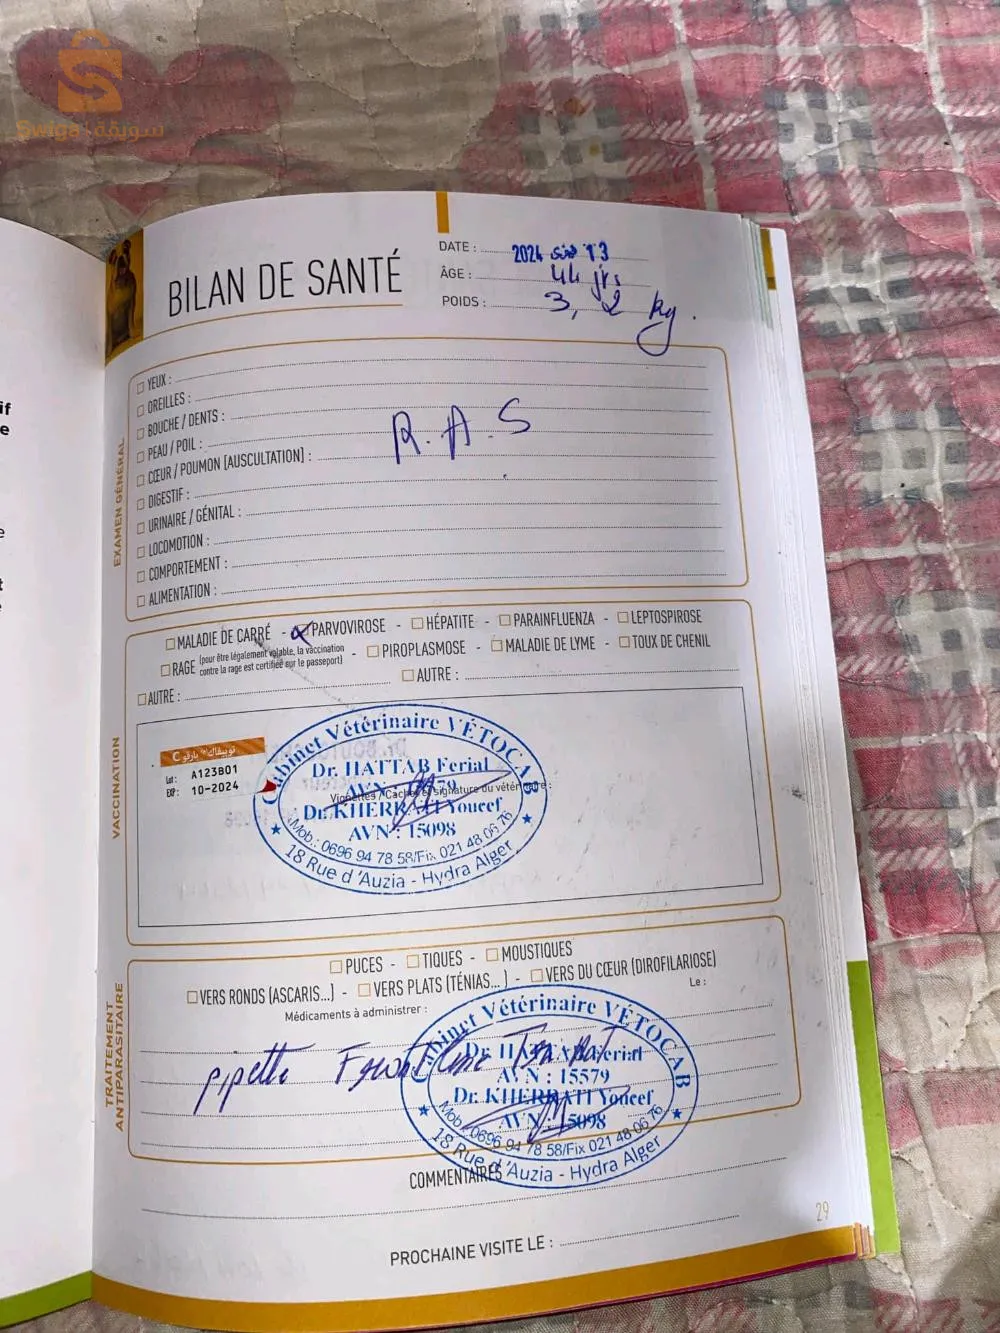 Swiga | سويقة
if
e
e
t
BILAN DE SANTÉ
DATE : 2024 13
ÂGE : 44 jrs
POIDS : 3,2 kg.
EXAMEN GÉNÉRAL
YEUX :
OREILLES :
BOUCHE / DENTS :
PEAU / POIL :
CŒUR / POUMON [AUSCULTATION] :
DIGESTIF :
URINAIRE / GÉNITAL :
LOCOMOTION :
COMPORTEMENT :
ALIMENTATION :
R.A.S
VACCINATION
MALADIE DE CARRÉ - PARVOVIROSE - HÉPATITE - PARAINFLUENZA - LEPTOSPIROSE
RAGE (pour être légalement valable, la vaccination contre la rage est certifiée sur le passeport) - PIROPLASMOSE - MALADIE DE LYME - TOUX DE CHENIL
AUTRE : AUTRE :
نوبيفاك® بارفو C
Lot : A123B01
EXP : 10-2024
Vignettes / Cachet et signature du vétérinaire :
Cabinet Vétérinaire VÉTOCAB
Dr. HATTAB Ferial
Dr. KHERBATI Youcef
AVN : 15098
Mob.: 0696 94 78 58/Fix 021 48 06 76
18 Rue d'Auzia - Hydra Alger
TRAITEMENT ANTIPARASITAIRE
PUCES - TIQUES - MOUSTIQUES
VERS RONDS (ASCARIS...) - VERS PLATS (TÉNIAS...) - VERS DU CŒUR (DIROFILARIOSE)
Médicaments à administrer : Le :
pipette
Cabinet Vétérinaire VÉTOCAB
Dr. HATTAB Ferial
AVN : 15579
Dr. KHERBATI Youcef
AVN : 15098
Mob.: 0696 94 78 58/Fix 021 48 06 76
18 Rue d'Auzia - Hydra Alger
COMMENTAIRES
PROCHAINE VISITE LE :
29